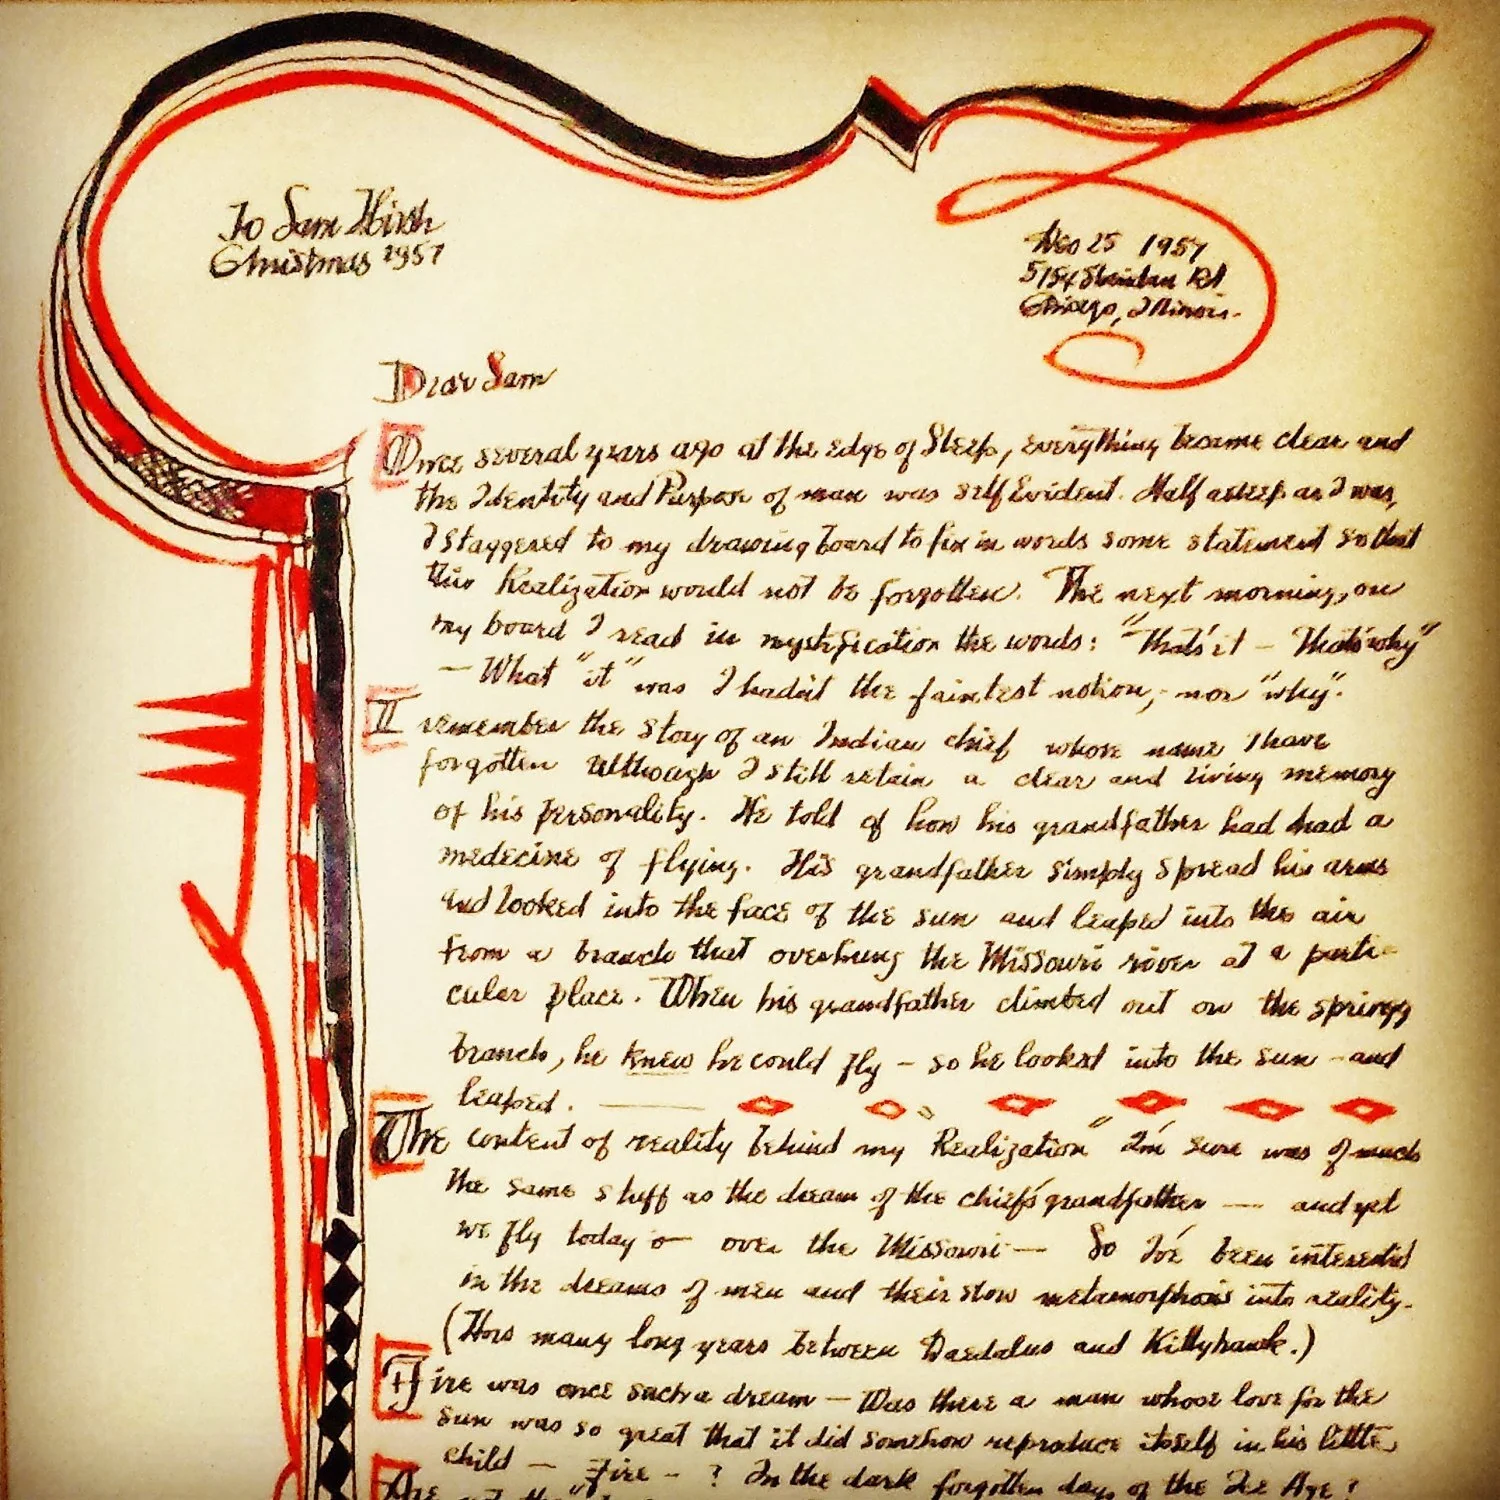 To Sam Hirsh
Christmas 1957
Dec 25 1957
5154 Sheridan Rd
Chicago, Illinois.
Dear Sam
Once several years ago at the edge of Sleep, everything became clear and
the Identity and Purpose of man was self Evident. Half asleep as I was,
I staggered to my drawing board to fix in words some statement so that
this Realization would not be forgotten. The next morning, on
my board I read in mystification the words: "That's it — That's why"
— What "it" was I hadn't the faintest notion, - nor "why".
I remember the story of an Indian chief whose name I have
forgotten Although I still retain a clear and living memory
of his personality. He told of how his grandfather had had a
medecine of flying. His grandfather simply spread his arms
and looked into the face of the sun and leaped into the air
from a branch that overhung the Missouri river at a parti-
cular place. When his grandfather climbed out on the springy
branch, he knew he could fly — so he looked into the sun — and
leaped.
The content of reality behind my "Realization" I'm sure was of much
the same stuff as the dream of the chief's grandfather — and yet
we fly today — over the Missouri — So I've been interested
in the dreams of men and their slow metamorphosis into reality.
(How many long years between Daedalus and Kittyhawk.)
Fire was once such a dream — Was there a man whose love for the
sun was so great that it did somehow reproduce itself in his little
child — Fire — ? In the dark forgotten days of the Ice Age?
Are not the